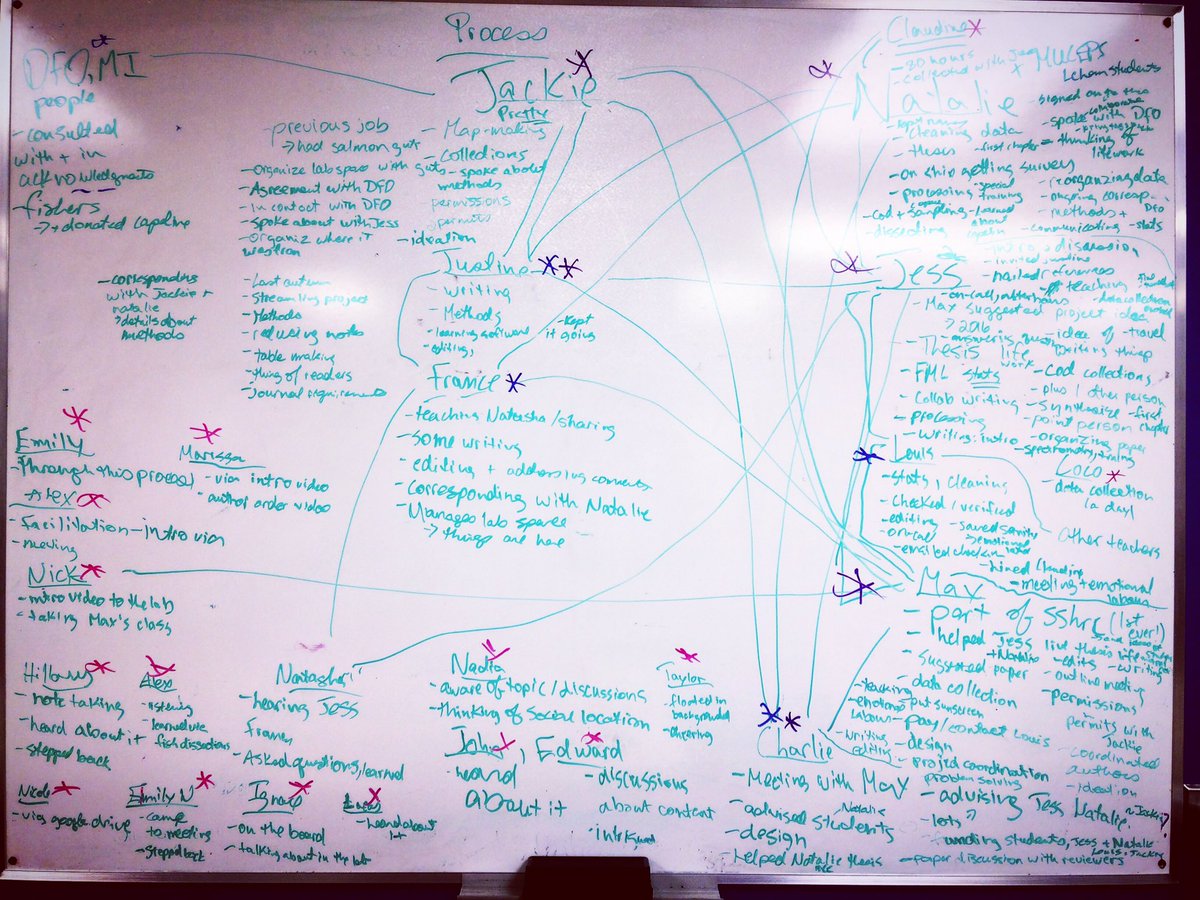 Process
DFO, MI
people
- consulted
with + in
acknowledgments
- fishers
→ donated capeline
Jackie
Pretty
previous job
→ had salmon guts
- Organize lab space with guts
- Agreement with DFO
- in contact with DFO
- spoke about with Jess
- Organiz where it
- Map-making
- collections
- spoke about
methods
permissions
permits
- ideation
Justine
- writing
- Methods
- learning software
- editing,
- Kept
it going
- corresponding
with Jackie +
natalie
→ details about
methods
- Last autumn
- Streamling project
- Methods
- reducing
- table making
- thing of readers
- Journal requirements
France
- teaching Natasha/sharing
- some writing
- editing + addressing comments
- corresponding with Natalie
- Manages lab space
→ things are here
Claudine
- 30 hours
- collected with Jess
MUCEPS
1 chem students
Natalie
- cleaning data
- thesis
- first chapter = thinking of
lifework
- signed on to this
- spoke with DFO
- on ship getting survey
- processing
- special
training
- Cod + sampling - learned
about
dissecting
- reorganizing data
- ongoing corresp.
DFO
- methods +
- communicating
- stats
Jess
- intro, + discussion
- nailed references
- teaching
- on-call/
- data collection
- Max suggested project idea
→ 2016
- idea of - travel
- answering
writing things
- Thesis life
work
- Cod collections
- FML stats
- plus 1 other person
- Collab writing
- synthesize - first
chapter
- processing
- point person
- writing: intro
- organizing paper
Louis
- stats, cleaning
- checked/verified
- editing
- on-call
- saved sanity
→ emotional
labor
- emailed checkin
Coco
- data collection
(a day)
other teachers
Max
- hired Claudine
- meeting + emotional
labour
- part of SShrc (1st
ever!)
- helped Jess
+ Natalie
live thesis life
- suggested paper
- edits
- writing
- outline meeting
- data collection
- permissions
- teaching
- emotional
labour
- put sunscreen
- pay/contact Louis
permits with
Jackie
- writing
editing
- design
- project coordination
problem solving
- coordinated
authors
- ideation
- advising Jess Natalie, Jackie?
- lots?
- funding students, Jess + Natalie
Louis, Jackie
- paper discussion with reviewers
Emily
- through this process
Marissa
- via intro video
- author order video
Alex
- Facilitation - intro via
- meeting
Nick
- intro video to the lab
- taking Max's class
Hillary
- note taking
- heard about it
- stepped back
Alex
- listening
- learned re
fish dissections
Natasha
- hearing Jess
France
- Asked questions, learned
Nadia
- aware of topic/discussions
- thinking of social location
Taylor
- floated in
background
John, Edward
heard
about it
- discussions
about content
Charlie
- Meeting with Max
- advised students
Natalie
- design
- helped Natalie thesis
Nicole
- via google drive
Emily N
- came
to meeting
- stepped back
Ignace
- on the board
- talking about in the lab
- heard about
it